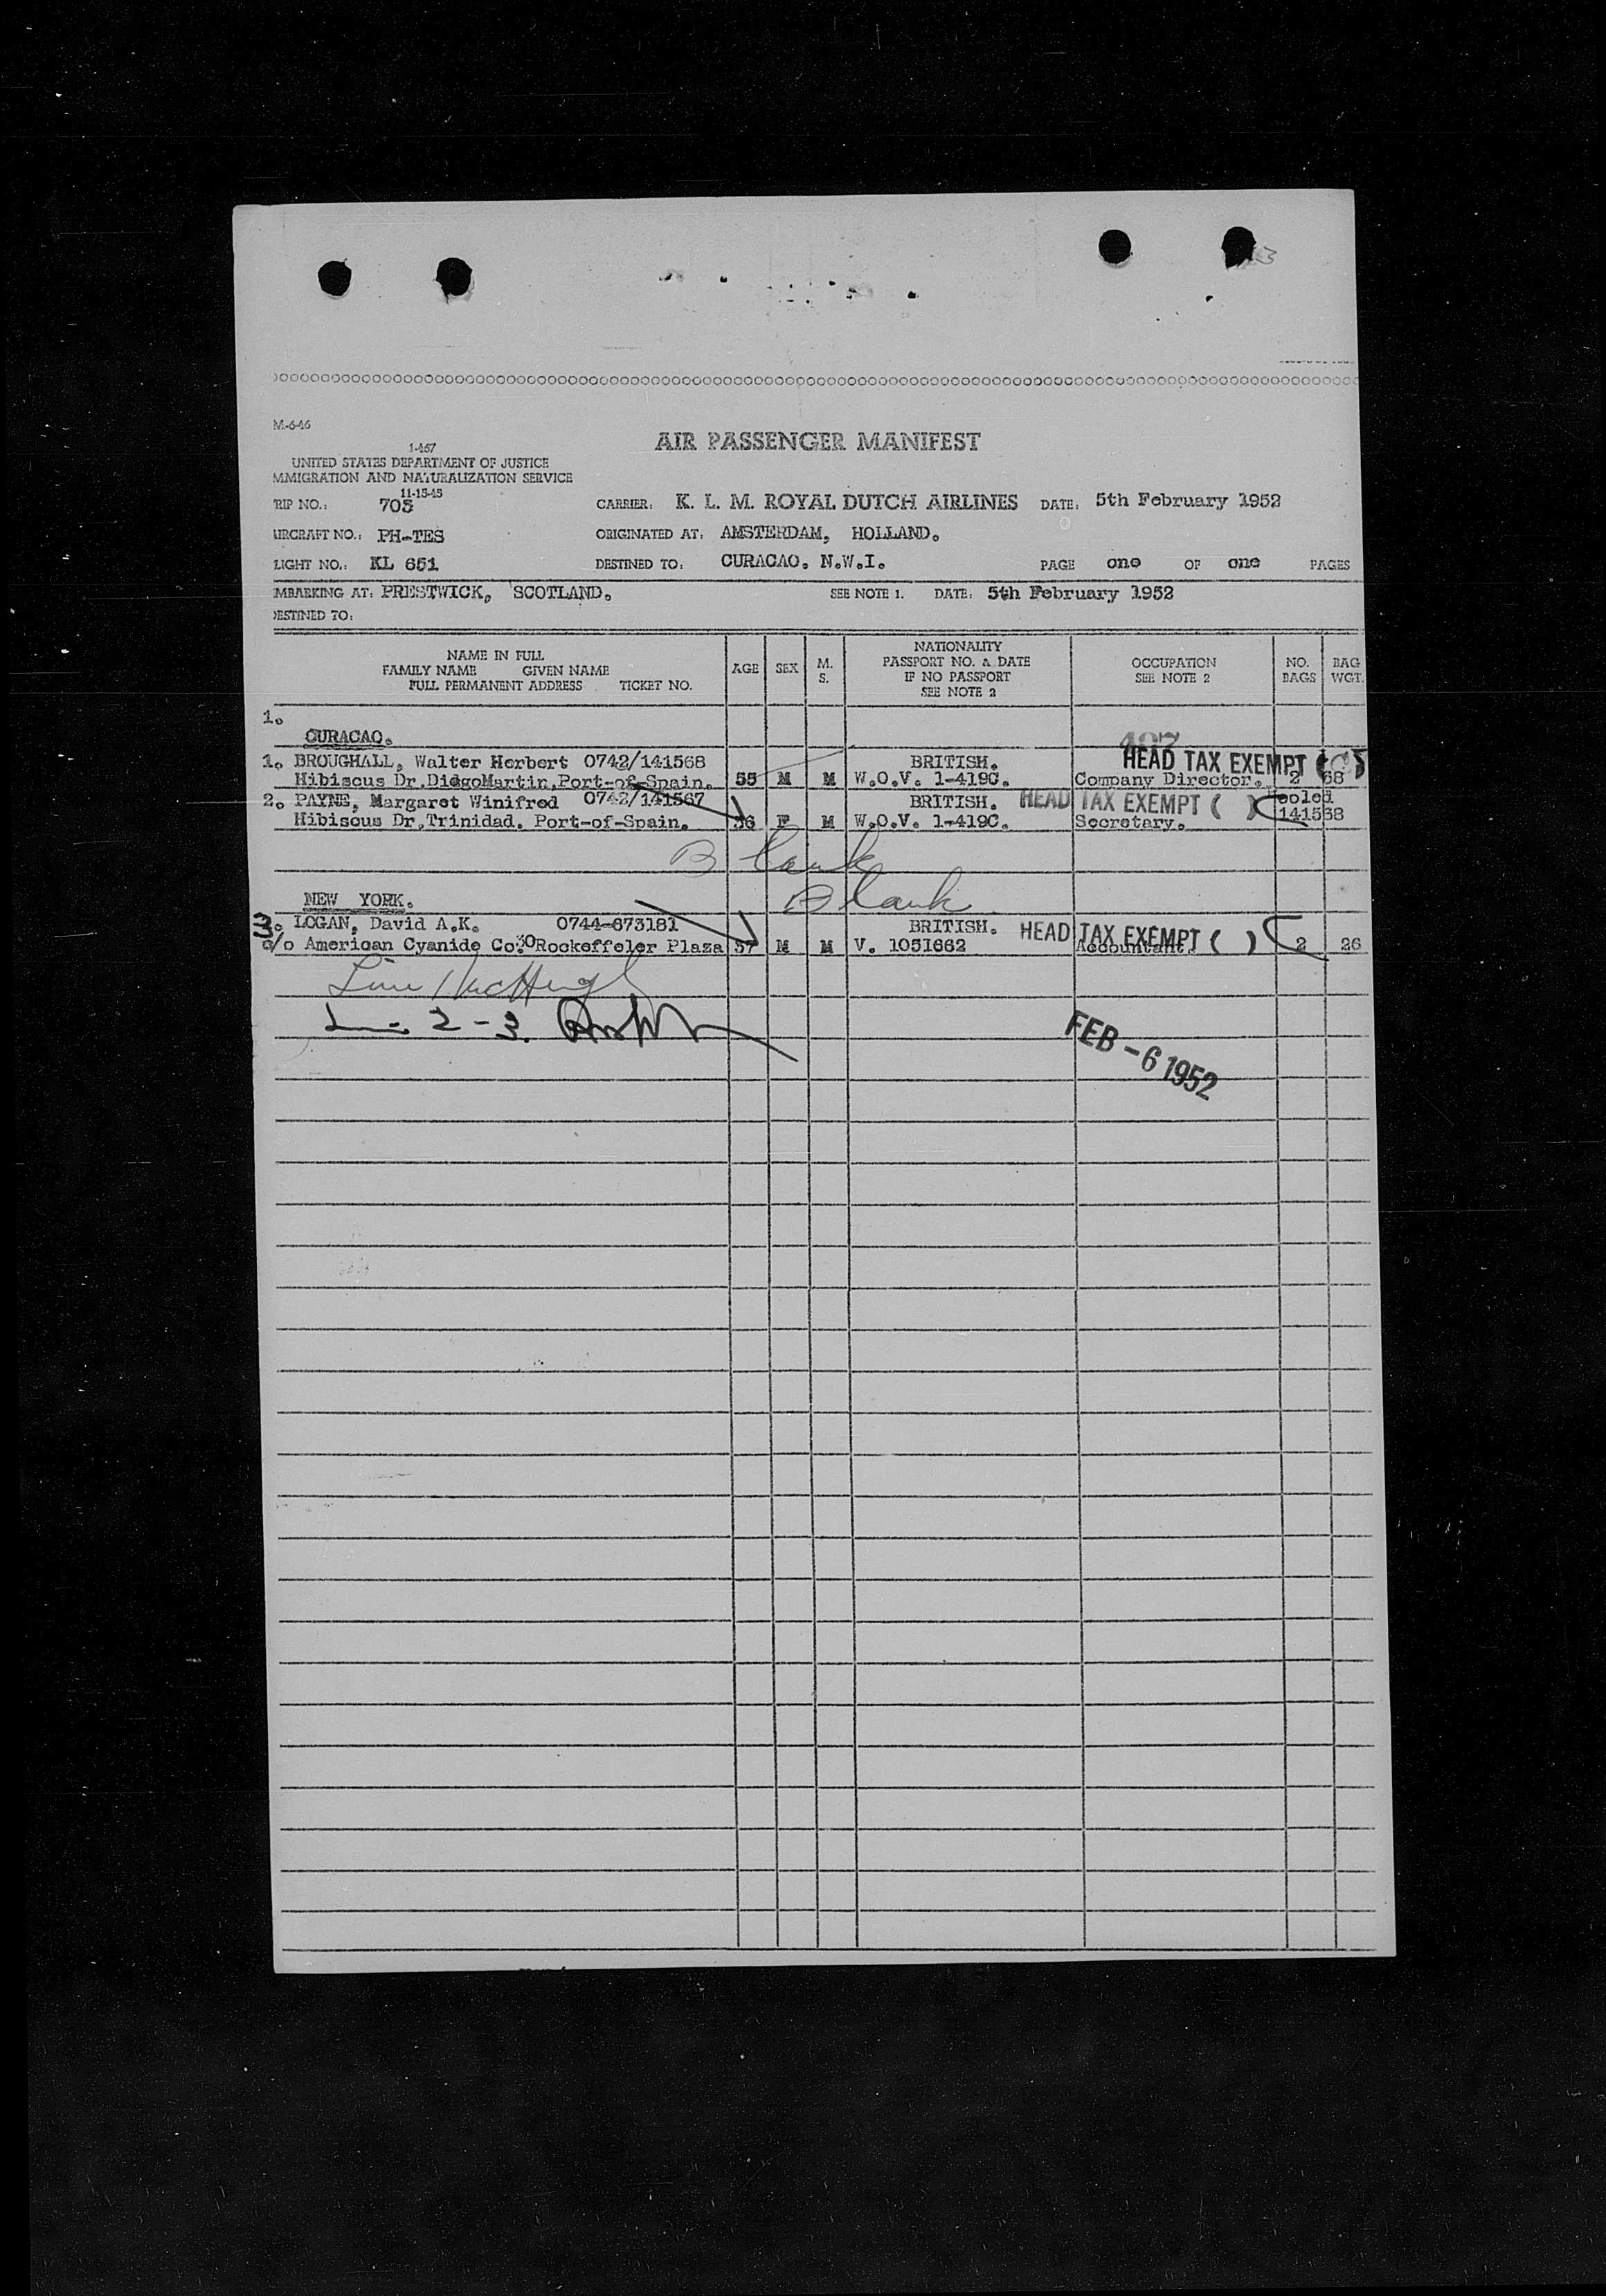 M-6-46
1-457
AIR PASSENGER MANIFEST
UNITED STATES DEPARTMENT OF JUSTICE
MMIGRATION AND NATURALIZATION SERVICE
11-15-45
RIP NO.: 703 CARRIER: K. L. M. ROYAL DUTCH AIRLINES DATE: 5th February 1952
IRCRAFT NO.: PH-TES ORIGINATED AT: AMSTERDAM, HOLLAND.
LIGHT NO.: KL 651 DESTINED TO: CURACAO. N.W.I. PAGE one OF one PAGES
MBARKING AT: PRESTWICK, SCOTLAND. SEE NOTE 1. DATE: 5th February 1952
DESTINED TO:
NAME IN FULL
FAMILY NAME GIVEN NAME
FULL PERMANENT ADDRESS TICKET NO.
AGE
SEX
M.
S.
NATIONALITY
PASSPORT NO. & DATE
IF NO PASSPORT
SEE NOTE 2
OCCUPATION
SEE NOTE 2
NO.
BAGS
BAG
WGT.
1.
CURACAO.
HEAD TAX EXEMPT
1. BROUGHALL, Walter Herbert 0742/141568 BRITISH.
Hibiscus Dr.DiegoMartin.Port-of-Spain. 55 M M W.O.V. 1-419C. Company Director. 2 68
2. PAYNE, Margaret Winifred 0742/141567 BRITISH. HEAD TAX EXEMPT ( ) Pooled
Hibiscus Dr.Trinidad. Port-of-Spain. 36 F M W.O.V. 1-419C. Secretary. 141568
Blank
Blank
NEW YORK.
3. LOGAN, David A.K. 0744-673181 BRITISH. HEAD TAX EXEMPT ( )
c/o American Cyanide Co.30Rockeffeler Plaza 57 M M V. 1051662 Accountant. 2 26
2-3.
FEB -6 1952